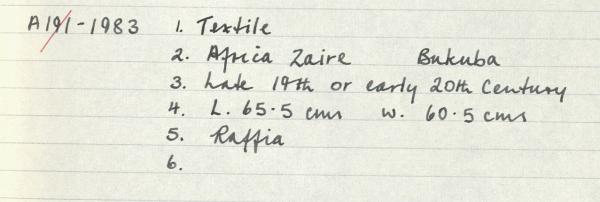 A191-1983 1. Textile
2. Africa Zaire Bukuba
3. Late 19th or early 20th Century
4. L. 65.5 cms W. 60.5 cms
5. Raffia
6.